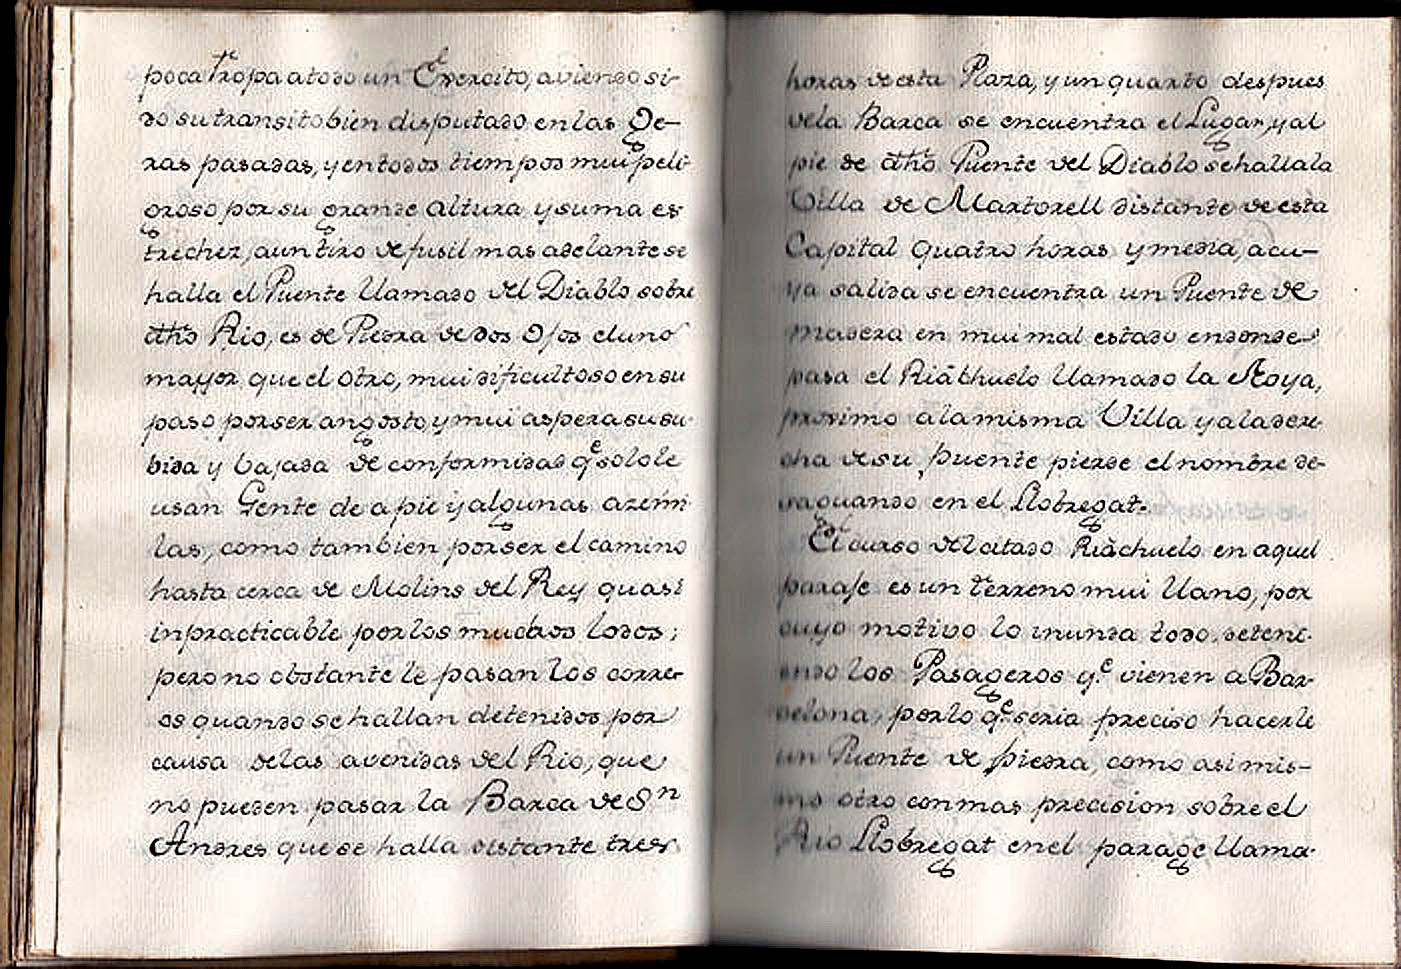 poca Tropa a todo un Exercito, aviendo si-
do su transito bien disputado en las Ge-
ras pasadas, y en todos tiempos mui peli
groso por su grande altura y suma es
trechez, a un tiro de fusil mas adelante se
halla el Puente llamado del Diablo sobre
dho Rio, es de Piedra de dos Ojos el uno
mayor que el otro, mui dificultoso en su
paso por ser angosto, y mui aspera su su-
bida y bajada de conformidad qe solo le
usan Gente de a pie y algunas azemi
las, como tambien por ser el camino
hasta cerca de Molins del Rey quasi
inpracticable por los muchos lodos;
pero no obstante le pasan los corre-
os quando se hallan detenidos por
causa de las avenidas del Rio, que
no pueden pasar la Barca de Sn
Andres que se halla distante tres
horas de esta Plaza, y un quarto despues
dela Barca se encuentra el Lugar, y al
pie de dho Puente del Diablo se halla la
Villa de Martorell distante de esta
Capital quatro horas y media, a cu-
ya salida se encuentra un Puente de
madera en mui mal estado en donde
pasa el Riâchuelo llamado la Noya,
proximo a la misma Villa y a la dere-
cha de su puente pierde el nombre de-
saguando en el Llobregat.
El curso del citado Riàchuelo en aquel
paraje es un terreno mui llano, por
cuyo motivo lo inunda todo, deteni-
endo los Pasageros qe vienen a Bar-
celona, por lo qe seria preciso hacerle
un Puente de piedra, como asimis-
mo otro con mas precision sobre el
Rio Llobregat en el parage llama-